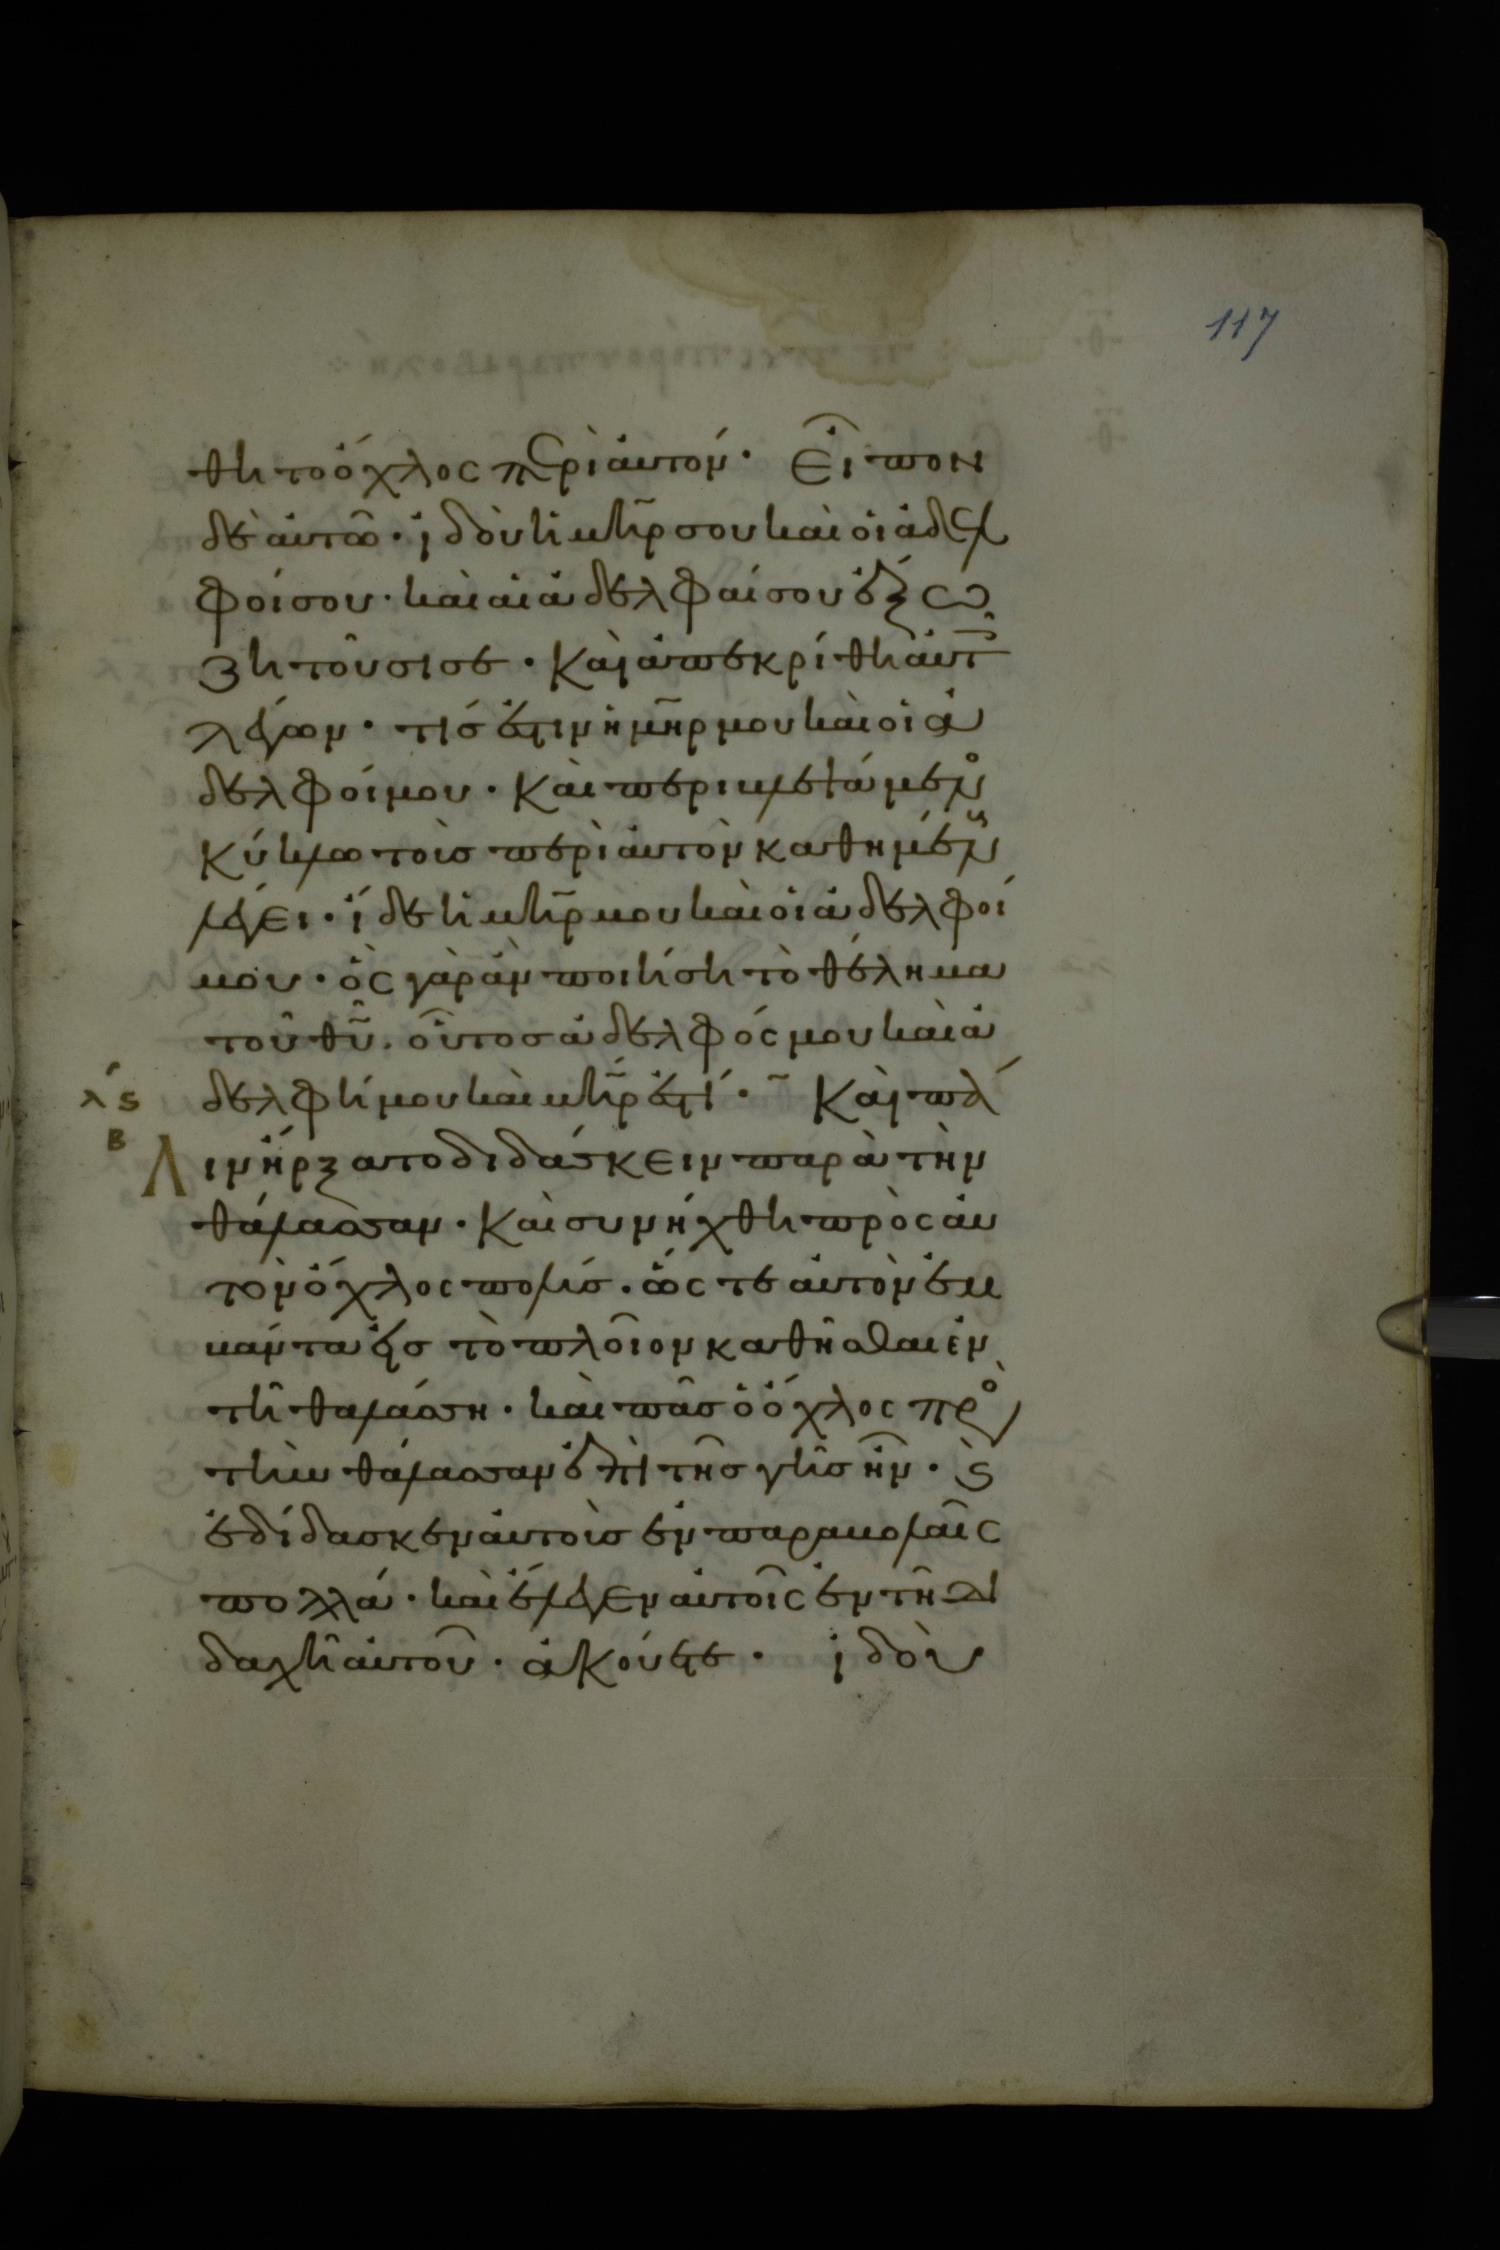 117
θητο ὄχλος περὶ αὐτόν· Εἶπον
δὲ αὐτῶ· ἰδοὺ ἡ μη̅ρ σου καὶ οἱ ἀδελ
φοί σου· καὶ αἱ ἀδελφαί σου ἔξω
ζητοῦσί σε· Καὶ ἀπεκρίθη αὐτ
λέγων· τίς ἐστιν ἡ μη̅ρ μου καὶ οἱ ἀ
δελφοί μου· Καὶ περιβλεψάμεν
κύκλω τοὺς περὶ αὐτὸν καθημέν
λέγει· ἴδε ἡ μη̅ρ μου καὶ οἱ ἀδελφοί
μου· ὃς γὰρ ἂν ποιήση τὸ θέλημα
τοῦ θυ̅. οὗτος ἀδελφός μου καὶ ἀ
λϛ δελφή μου καὶ μη̅ρ ἐστί· Καὶ πά
Β λιν ἤρξατο διδάσκειν παρὰ τὴν
θάλασσαν· Καὶ συνήχθη πρὸς αὐ
τὸν ὄχλος πολύς. ὥστε αὐτὸν ἐμ
βάντα εἰς τὸ πλοῖον καθῆσθαι ἐν
τῆ θαλάσση· καὶ πᾶς ὁ ὄχλος πρὸ
τὴν θάλασσαν ἐπὶ τῆς γῆς ἦν· ϛ
ἐδίδασκεν αὐτοὺς ἐν παραβολαῖς
πολλά· καὶ ἔλεγεν αὐτοῖς ἐν τῆ δι
δαχῆ αὐτοῦ· ἀκούετε· ἰδοὺ